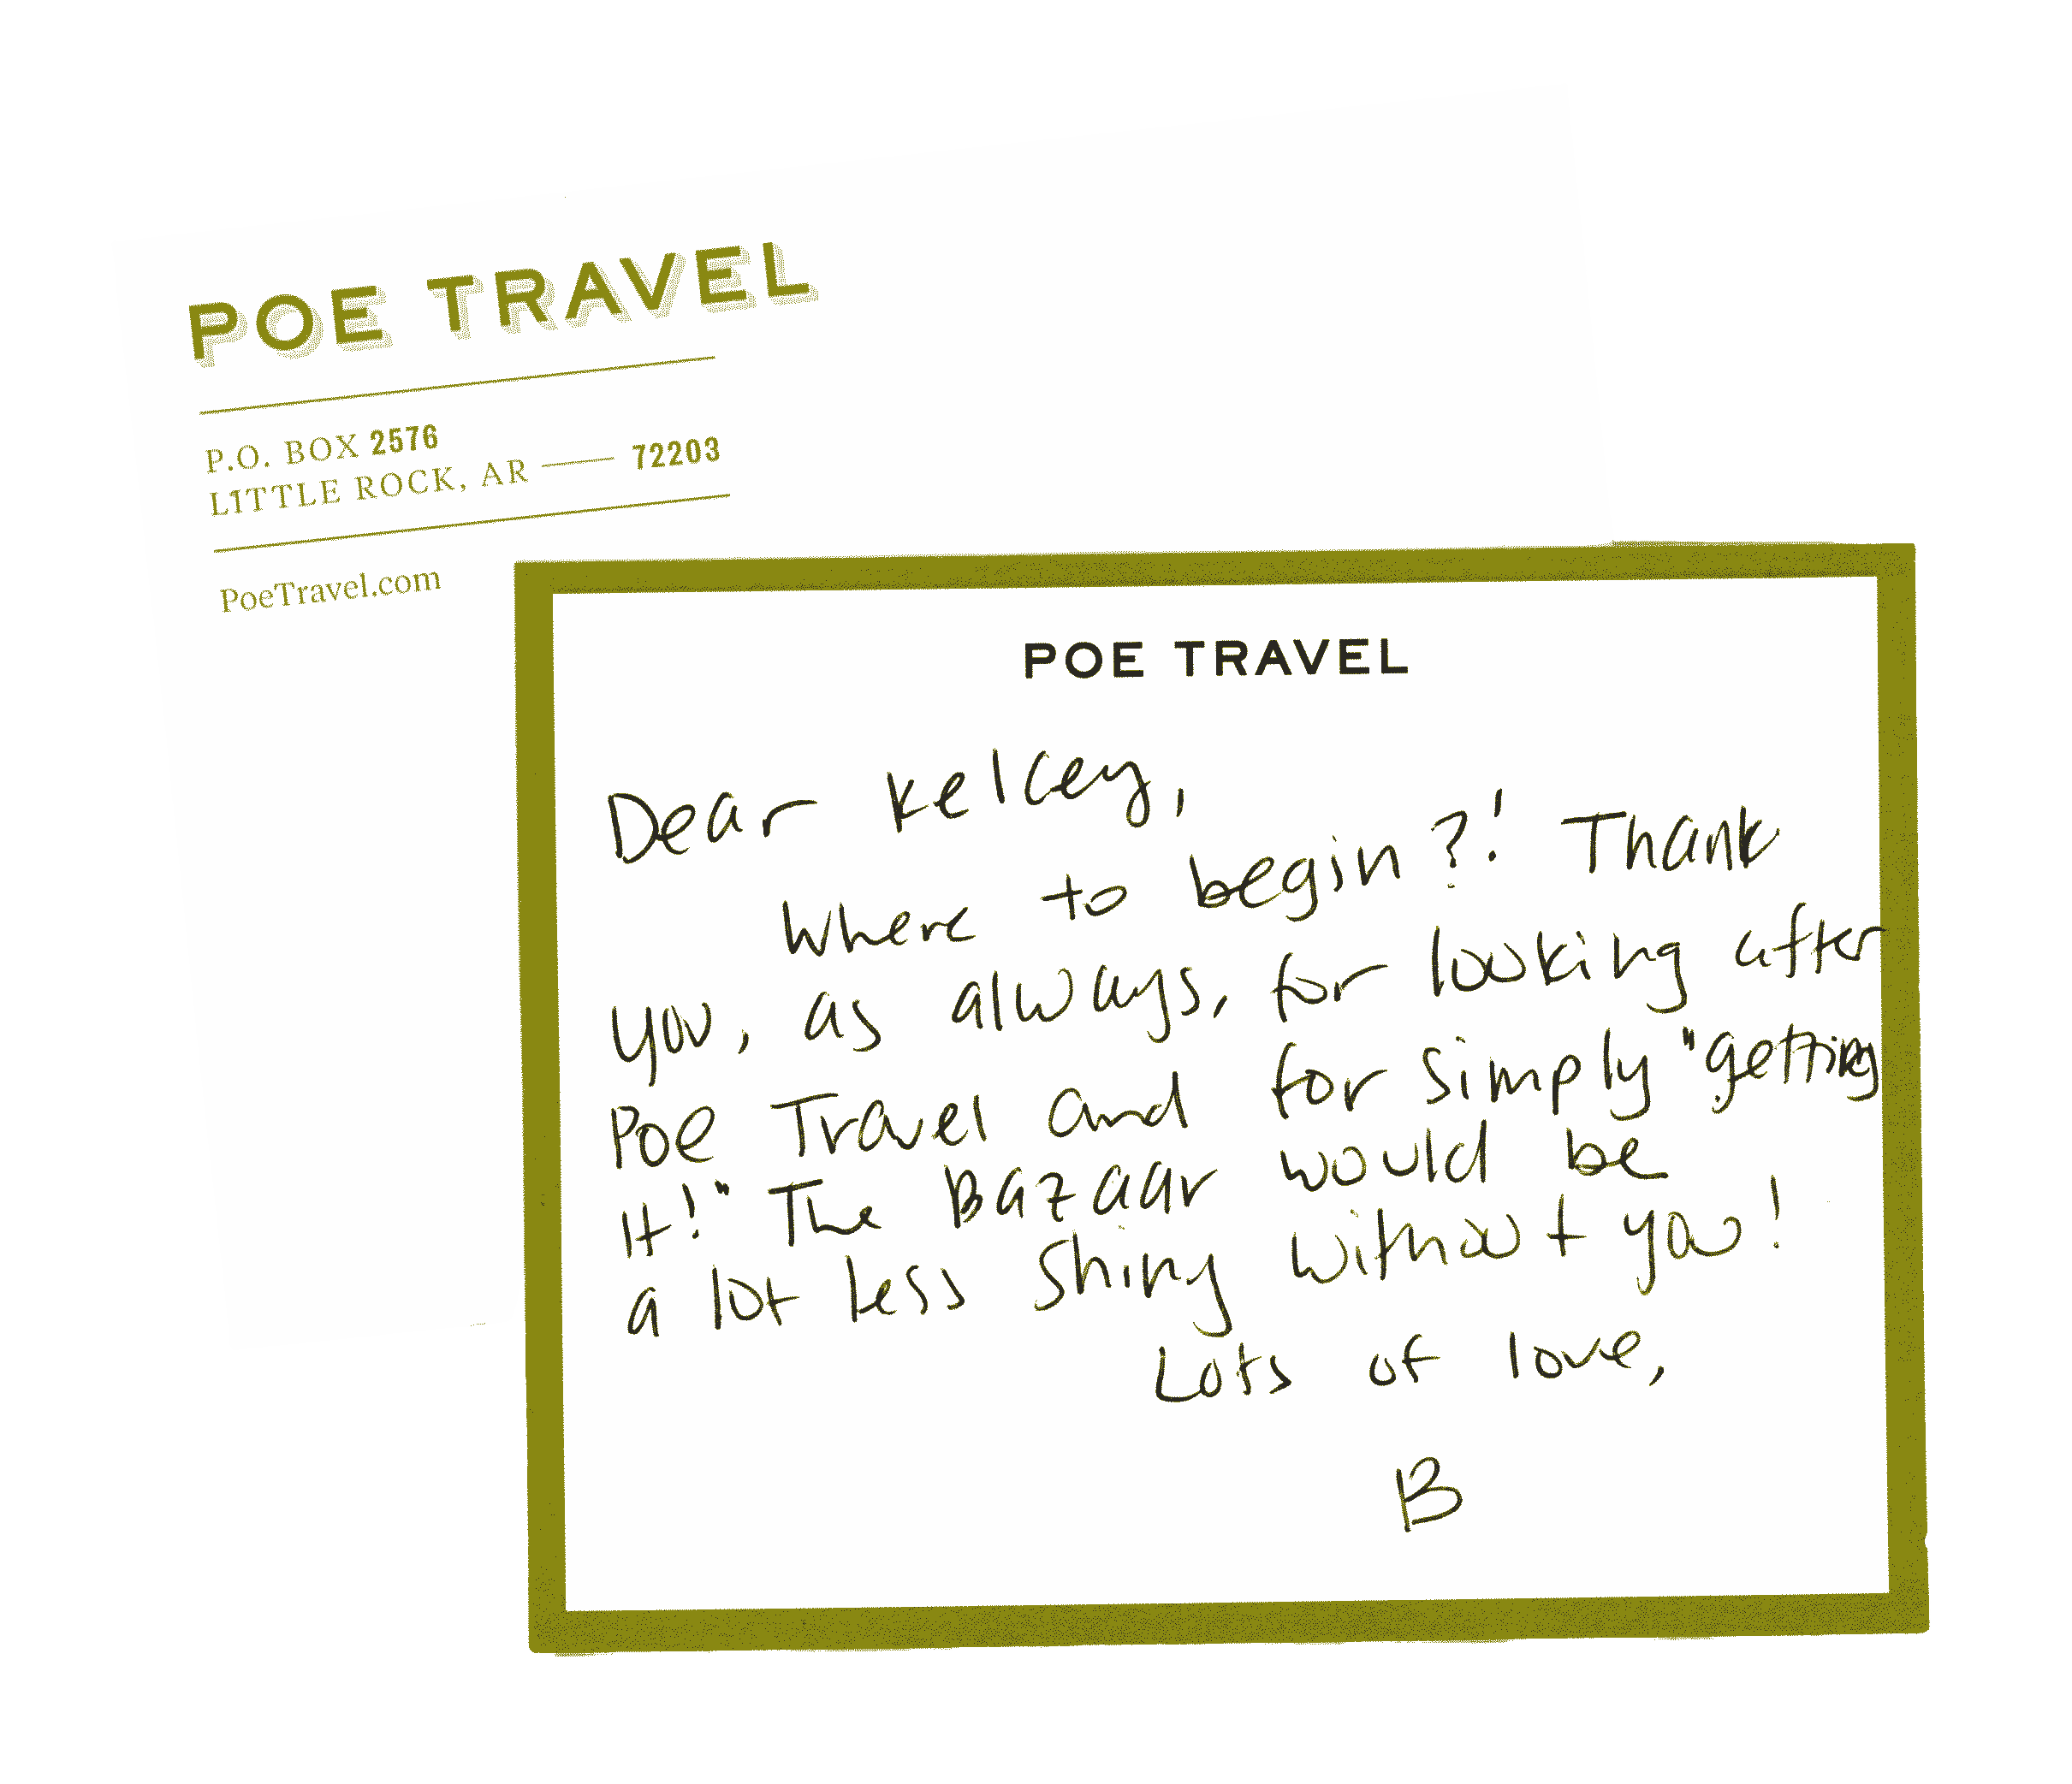 POE TRAVEL
P.O. BOX 2576
LITTLE ROCK, AR — 72203
PoeTravel.com
POE TRAVEL
Dear Kelcey,
Where to begin?! Thank
you, as always, for looking after
Poe Travel and for simply "getting
it!" The Bazaar would be
a lot less shiny without you!
Lots of love,
B